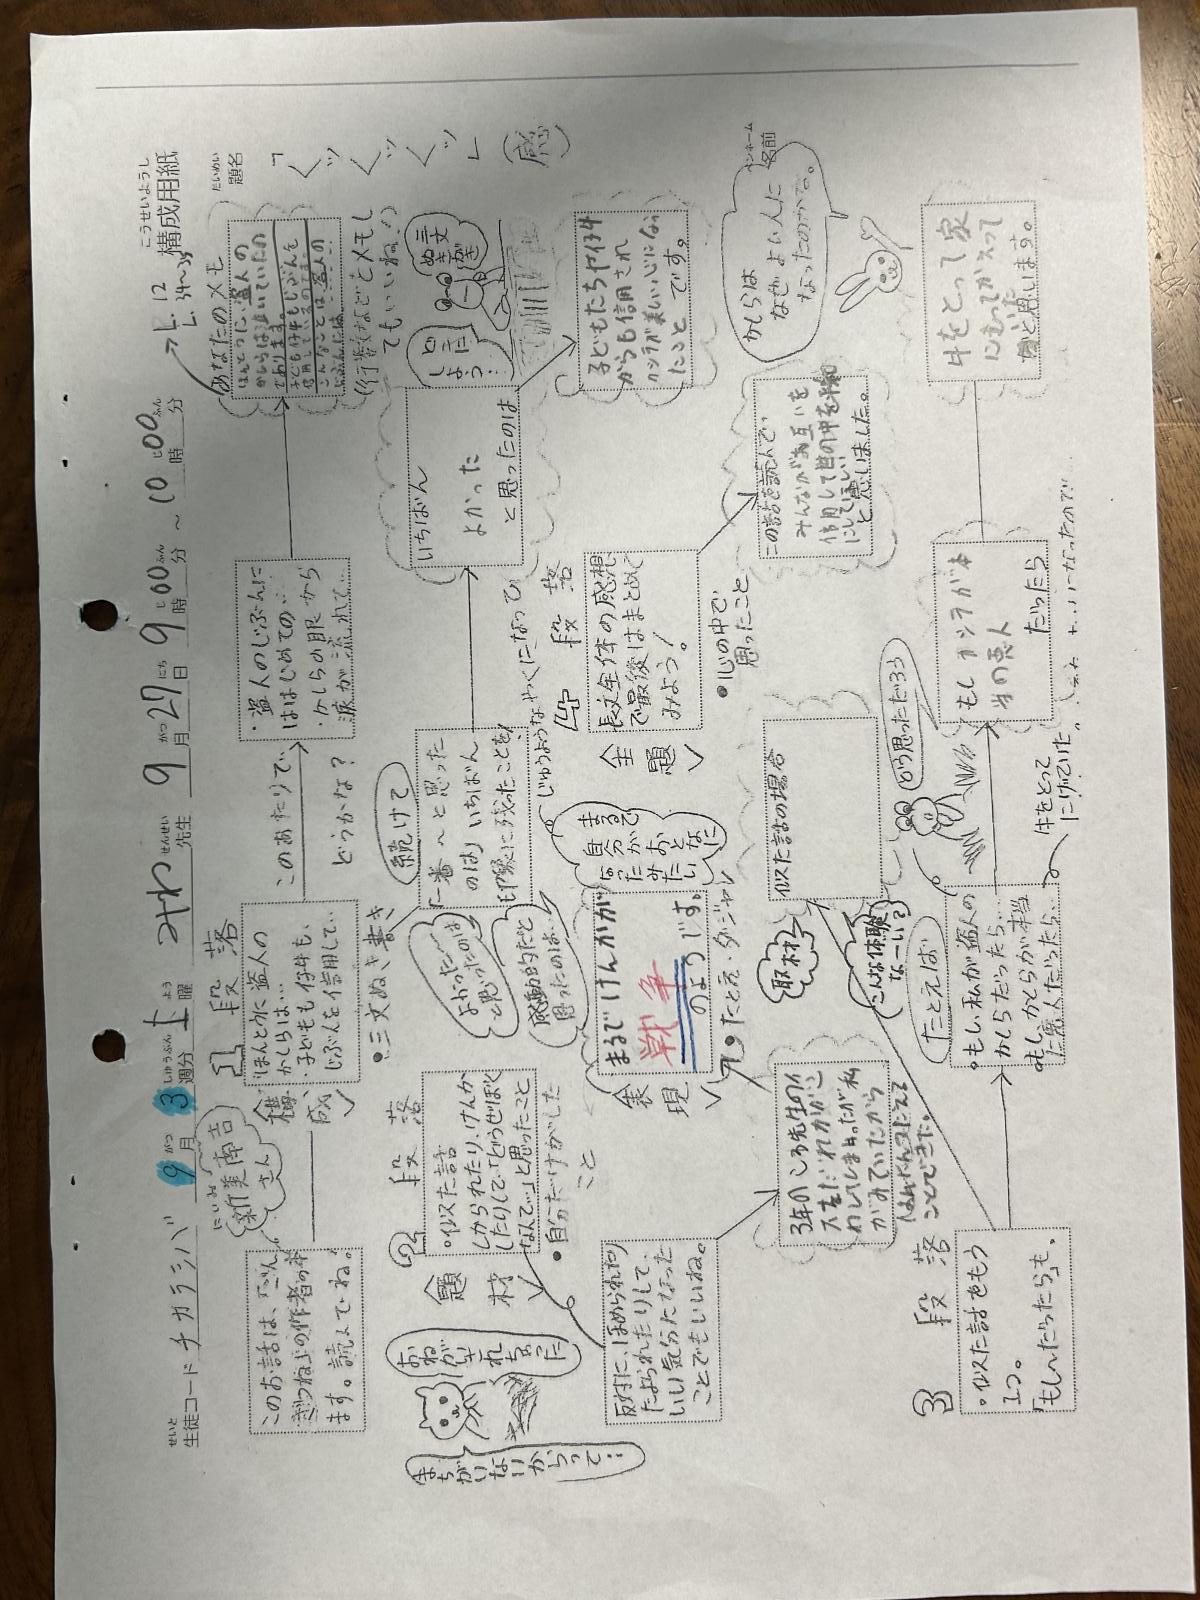 こうせいようし
構成用紙
せいと
生徒コード チカラシバ 9月 3週分 土曜 みわ先生 9月27日 9時00分～10時00分
がつ しゅうぶん よう せんせい がつ にち じ ふん じ ふん
だいめい
題名
「クックックッ」(感)
ペンネーム
名前
L.12
L.34～35
このお話は、『ごんぎつね』の作者の本
ます。読んでね!
にいみ
新美南吉
さん
1段落
構成
・ほんとうに盗人の
かしらは…
・子どもも仔牛も、
じぶんを信用して、
このあたりで、
どうかな?
・盗人のじぶんに
ははじめての…
・かしらの眼から
涙が流れて…
あなたのメモ
ほんとうに、盗人の
かしらは泣いていたの
であります。
子どもも仔牛もじぶんを
信用しているのです。
(行数などとメモし
てもいいね!)
●三文ぬき書き
続けて
「一番～と思った
のは」いちばん
印象に残ったことを!
よかった～
と思ったのは
感動的だと
思ったのは…
じゅうようなやくになって
いちばん
よかった
と思ったのは
どこに
しよう…
三文
ぬき
がき
子どもたちや仔牛
からも信用され
カシラが美しい心になっ
たこと です。
2段落
題材
・似た話
しかられたり、けんか
したりして、「どうせぼく
なんて…」と思ったこと
●自分だけがした
こと
まちがいないからって…
おねがいされちゃった
反対に、ほめられたり
たよられたりして、
いい気分になった
ことでもいいね。
3年のころ先生のイ
スをだれかがこ
わしてしまったが私
がみていたから
はんにんをつたえる
ことができた。
表現
まるでけんかが
戦争
のようです。
●たとえ・ダジャレ
まるで
自分が
おとなに
なった
みたい
4段落
主題
長文全体の感想
で最後はまとめて
みよう!
●心の中で
思ったこと
この話を読んで、
みんながお互いを
信用して世の中を平和
にしてほしい
と思いました。
かしらは
なぜよい人に
なったのかな。
3段落
・似た話をもう
1つ。
「もし～だったらも」
取材
似た話の場合
こんな体験
な～い?
たとえば
・もし、私が盗人の
かしらだったら…
・もし、かしらが本当
に悪人だったら…
どう思っただろう
牛をとって
にげていた。
もしカシラが本
当の悪人
だったら
牛をとって家
にもってかえって
と思います。